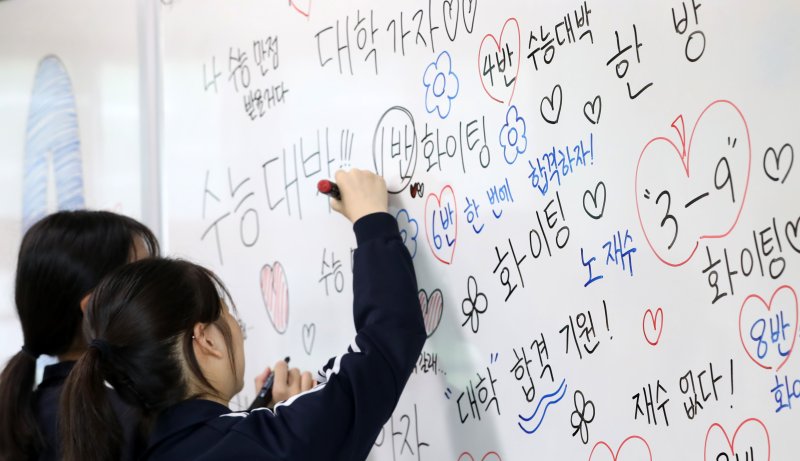 대학 가자
나 수능 만점
받을거다
4반
수능대박
수능
한 방
수능대박!!!
1반
화이팅
6반
한 번에
합격하자!
"3-9"
화이팅
노 재수
화이팅
8반
"대학"
합격 기원!
재수 없다!